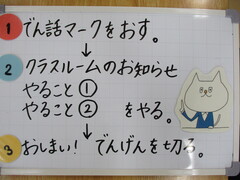 1 でん話マークをおす。
↓
2 クラスルームのお知らせ
やること①
やること② をやる。
↓
3 おしまい! でんげんを切る。